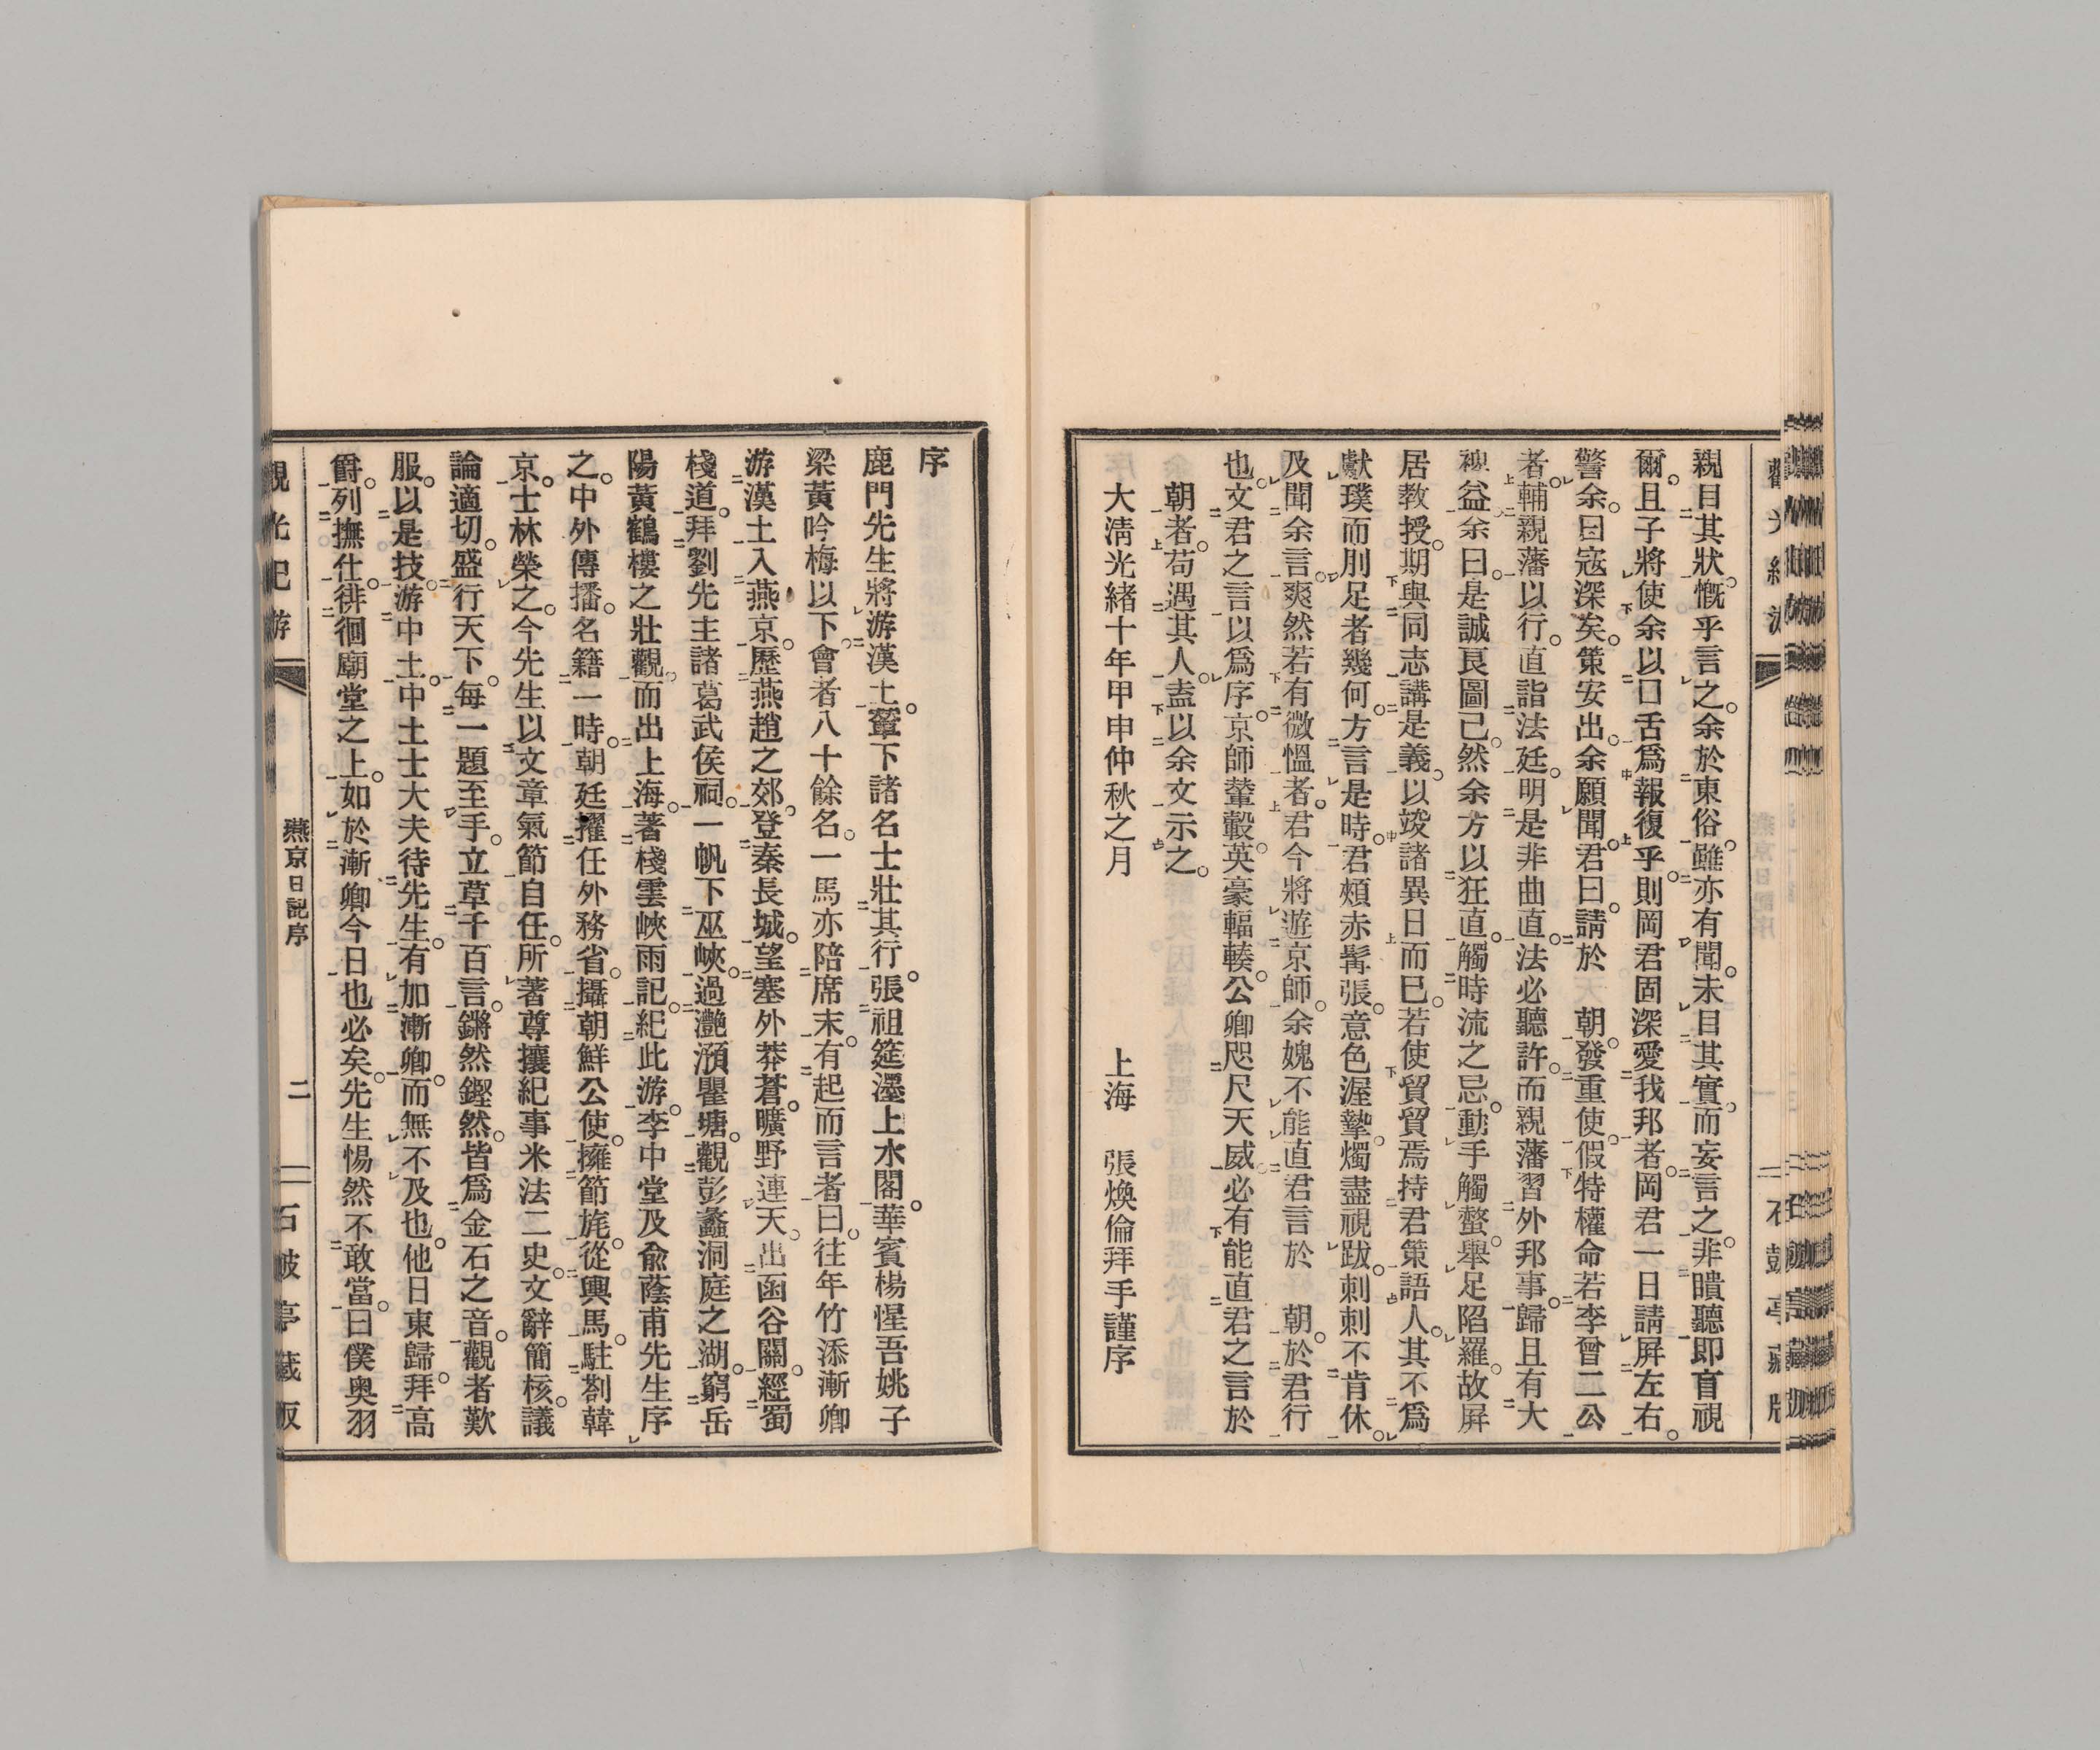 親目其狀。慨乎言之。余於東俗。雖亦有聞。未目其實。而妄言之。非瞶聽即盲視
爾。且子將使余以口舌爲報復乎。則岡君固深愛我邦者。岡君一日請屛左右。
警余。曰寇深矣。策安出。余願聞。君曰。請於 朝。發重使。假特權命若李曾二公
者。輔親藩以行。直詣法廷。明是非曲直。法必聽許。而親藩習外邦事。歸且有大
裨益。余曰。是誠良圖已。然余方以狂直。觸時流之忌。動手觸螯。舉足陷羅。故屛
居教授。期與同志講是義。以竢諸異日而已。若使貿貿焉持君策語人。其不爲
獻璞而刖足者幾何。方言是時。君頰赤髯張。意色渥摯。燭盡視跋。刺刺不肯休。
及聞余言。爽然若有微慍者。君今將游京師。余媿不能直君言於 朝。於君行
也。文君之言以爲序。京師輦轂。英豪輻輳。公卿咫尺天威。必有能直君之言於
朝者。苟遇其人。盍以余文示之。
大淸光緒十年甲申仲秋之月 上海 張煥倫拜手謹序
序
鹿門先生將游漢土。輦下諸名士壯其行。張祖筵濹上水閣。華賓楊惺吾姚子
梁黃吟梅以下。會者八十餘名。一馬亦陪席末。有起而言者。曰往年竹添漸卿
游漢土。入燕京。歷燕趙之郊。登秦長城。望塞外莽蒼。曠野連天。出函谷關。經蜀
棧道。拜劉先主諸葛武侯祠。一帆下巫峽。過灩澦瞿塘。觀彭蠡洞庭之湖。窮岳
陽黃鶴樓之壯觀。而出上海。著棧雲峽雨記。紀此游。李中堂及兪蔭甫先生序
之。中外傳播。名籍一時。朝廷擢任外務省。攝朝鮮公使。擁節旄。從輿馬。駐劄韓
京。士林榮之。今先生以文章氣節自任。所著尊攘紀事米法二史。文辭簡核。議
論適切。盛行天下。每一題至手。立草千百言。鏘然鏗然。皆爲金石之音。觀者歎
服。以是技。游中土。中土士大夫待先生。有加漸卿。而無不及也。他日東歸。拜高
爵。列撫仕。徘徊廟堂之上。如於漸卿今日也必矣。先生惕然不敢當。曰僕奧羽
燕京日記序
二